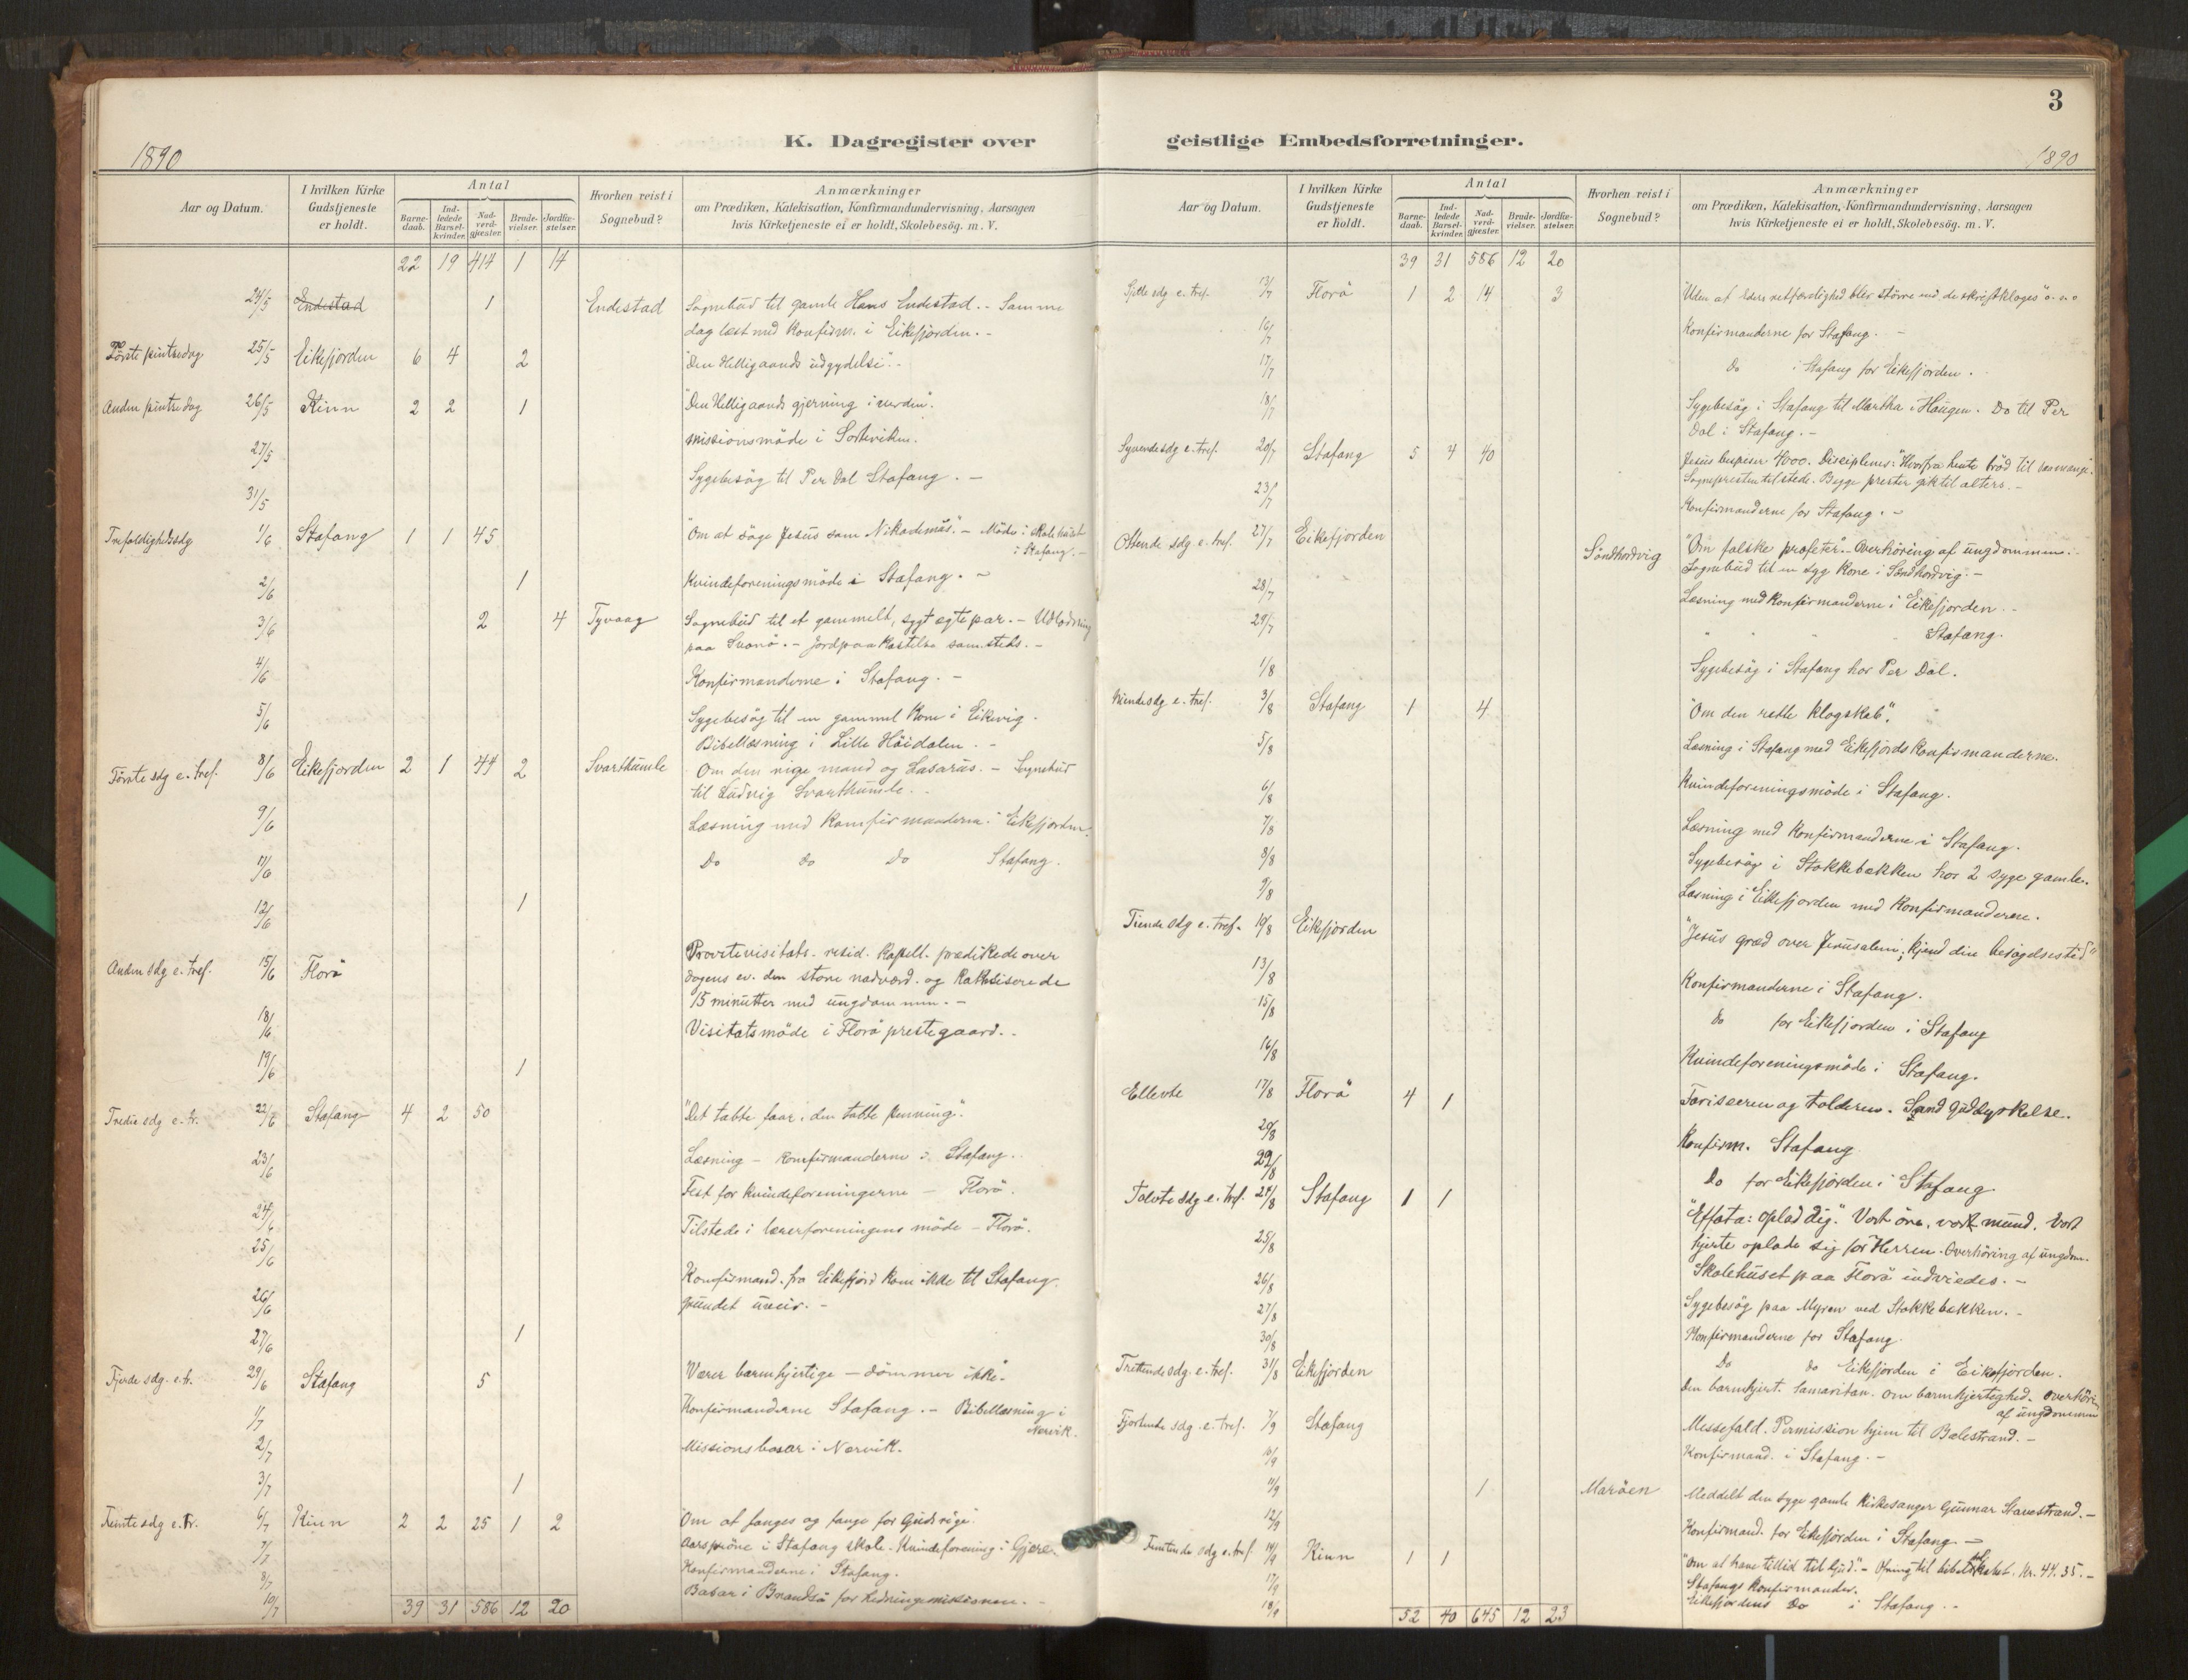 3
K. Dagregister over geistlige Embedsforretninger.
1890
1890
Aar og Datum.
I hvilken Kirke Gudstjeneste er holdt.
Antal
Barne-daab.
Ind-ledede Barsel-kvinder.
Nad-verd-gjæster.
Brude-vielser.
Jordfæ-stelser.
Hvorhen reist i Sognebud?
Anmærkninger
om Prædiken, Katekisation, Konfirmandundervisning, Aarsagen
hvis Kirketjeneste ei er holdt, Skolebesög. m. V.
22 19 414 1 14
24/5 Endestad 1 Endestad Sognebud til gamle Hans Endestad. - Samme
dag læst med Konfirm. i Eikefjorden. -
Første pintsedag 25/5 Eikefjorden 6 4 2 "Den Helligaands udgydelse". -
Anden pintsedag 26/5 Kinn 2 2 1 "Den Helligaands gjerning i verden".
27/5 missionsmöde i
31/5 Sygebesög til Per Dal Stafang. -
Trefoldighedssdg 1/6 Stafang 1 1 45 "Om at söge Jesus som Nikodemus". - Möde i skolehuset
i Stafang. -
2/6 1 Kvindeforeningsmöde i Stafang. -
3/6 2 4 Tyvaag Sognebud til et gammelt, sygt ægtepar. - Udlodning
paa Svanö. - Jordpaakastelse sammesteds. -
4/6 Konfirmanderne i Stafang. -
5/6 Sygebesög til en gammel Kone i Eikevig.
Bibellæsning i Lille Höidalen. -
Første sdg e. tref. 8/6 Eikefjorden 2 1 44 2 Svarthumle Om den rige mand og Lasarus. - Sognebud
til Ludvig Svarthumle. -
9/6 Læsning med Konfirmanderne i Eikefjorden.
11/6 Do do Do Stafang.
12/6 1
Anden sdg e. tref. 15/6 Florö Provstevisitats. resid. Kapell. prædikede over
dagens ev. den store nadverd. og Katekiserede
15 minutter med ungdommen. -
18/6 Visitatsmöde i Florö prestegaard. -
19/6 1
Tredie sdg e. tr. 22/6 Stafang 4 2 50 "Det tabte faar, den tabte penning".
23/6 Læsning - Konfirmanderne i Stafang. -
Fest for kvindeforeningerne - Florö.
24/6 Tilstede i lærerforeningens möde - Florö.
25/6
26/6 Konfirmand. fra Eikefjord kom ikke til Stafang
grundet uveir. -
27/6 1
Fjerde sdg. e. tr. 29/6 Stafang 5 Værer barmhjertige - dömmer ikke".
1/7 Konfirmanderne Stafang. - Bibellæsning i
Nærvik.
2/7 Missionsbasar i Nærvik.
3/7 1
Femte sdg e. tr. 6/7 Kinn 2 2 25 1 2 Om at fanges og fange for Guds rige.
7/7 Aarspröve i Stafang skole. Kvindeforening i
8/7 Konfirmanderne i Stafang.
10/7 Basar i Brandsö for Hedningemissionen. -
39 31 586 12 20
Aar og Datum.
I hvilken Kirke Gudstjeneste er holdt.
Antal
Barne-daab.
Ind-ledede Barsel-kvinder.
Nad-verd-gjæster.
Brude-vielser.
Jordfæ-stelser.
Hvorhen reist i Sognebud?
Anmærkninger
om Prædiken, Katekisation, Konfirmandundervisning, Aarsagen
hvis Kirketjeneste ei er holdt, Skolebesög. m. V.
39 31 586 12 20
Sjette sdg e. tref. 13/7 Florö 1 2 14 3 "Uden at eders retfærdighed bler större end de skriftkloges"
16/7 Konfirmanderne for Stafang. -
17/7 Do i Stafang for Eikefjorden.
18/7 Sygebesög i Stafang til Martha i Haugen. Do til Per
Dal i Stafang. -
Syvende sdg e. tref. 20/7 Stafang 5 4 40 Jesus bespiser 4000. Disciplenes: "Hvorfra hente bröd til saa mange".
Sognepresten tilstede. Begge prester gik til alters. -
23/7 Konfirmanderne for Stafang. -
Ottende sdg e. tref. 27/7 Eikefjorden Söndhordvig "Om falske profeter". - Overhöring af ungdommen. -
Sognebud til en syg Kone i Söndhordvig. -
28/7 Læsning med Konfirmanderne i Eikefjorden. -
29/7 " " " Stafang.
1/8 Sygebesög i Stafang hos Per Dal.
Niende sdg e. tref. 3/8 Stafang 1 4 "Om den rette klogskab".
5/8 Læsning i Stafang med Eikefjords Konfirmanderne.
6/8 Kvindeforeningsmöde i Stafang.
7/8 Læsning med Konfirmanderne i Stafang.
8/8 Sygebesög i Stokkebækken hos 2 syge gamle.
9/8 Læsning i Eikefjorden med Konfirmanderne.
Tiende sdg e. tref. 10/8 Eikefjorden "Jesus græd over Jerusalem; kjend din besögelsestid"
13/8 Konfirmanderne i Stafang.
15/8 Do for Eikefjorden i Stafang
16/8 Kvindeforeningsmöde i Stafang.
Ellevte 17/8 Florö 4 1 Fariseeren og tolderen. Sand Gudsdyrkelse.
20/8 Konfirm. Stafang
22/8 Do for Eikefjorden i Stafang
Tolvte sdg e. tref. 24/8 Stafang 1 1 "Effata: oplad dig." Vort öre, vort mund, vort
hjerte oplade sig for Herren. Overhöring af ungdom.
25/8 Skolehuset paa Florö indviedes. -
26/8 Sygebesög paa Myren ved Stokkebækken. -
27/8 Konfirmanderne for Stafang.
30/8 Do do Eikefjorden i Eikefjorden.
Trettende sdg. e. tref. 31/8 Eikefjorden Den barmhjert. Samaritan. Om barmhjertighed. Overhöring
af ungdommen
Fjortende sdg. e. tref. 7/9 Stafang Messefald. Permission hjem til Balestrand. -
10/9 Konfirmand. i Stafang. -
11/9 1 Maröen Meddelt den syge gamle Kirkesanger Gunnar Stavestrand. -
12/9 Konfirmand. for Eikefjorden i Stafang. -
Femtende sdg e. tref. 14/9 Kinn 1 1 "Om at have tillid til Gud". - til Kr. 44.35. -
17/9 Stafangs Konfirmander.
18/9 Eikefjordens Do i Stafang. -
52 40 645 12 23